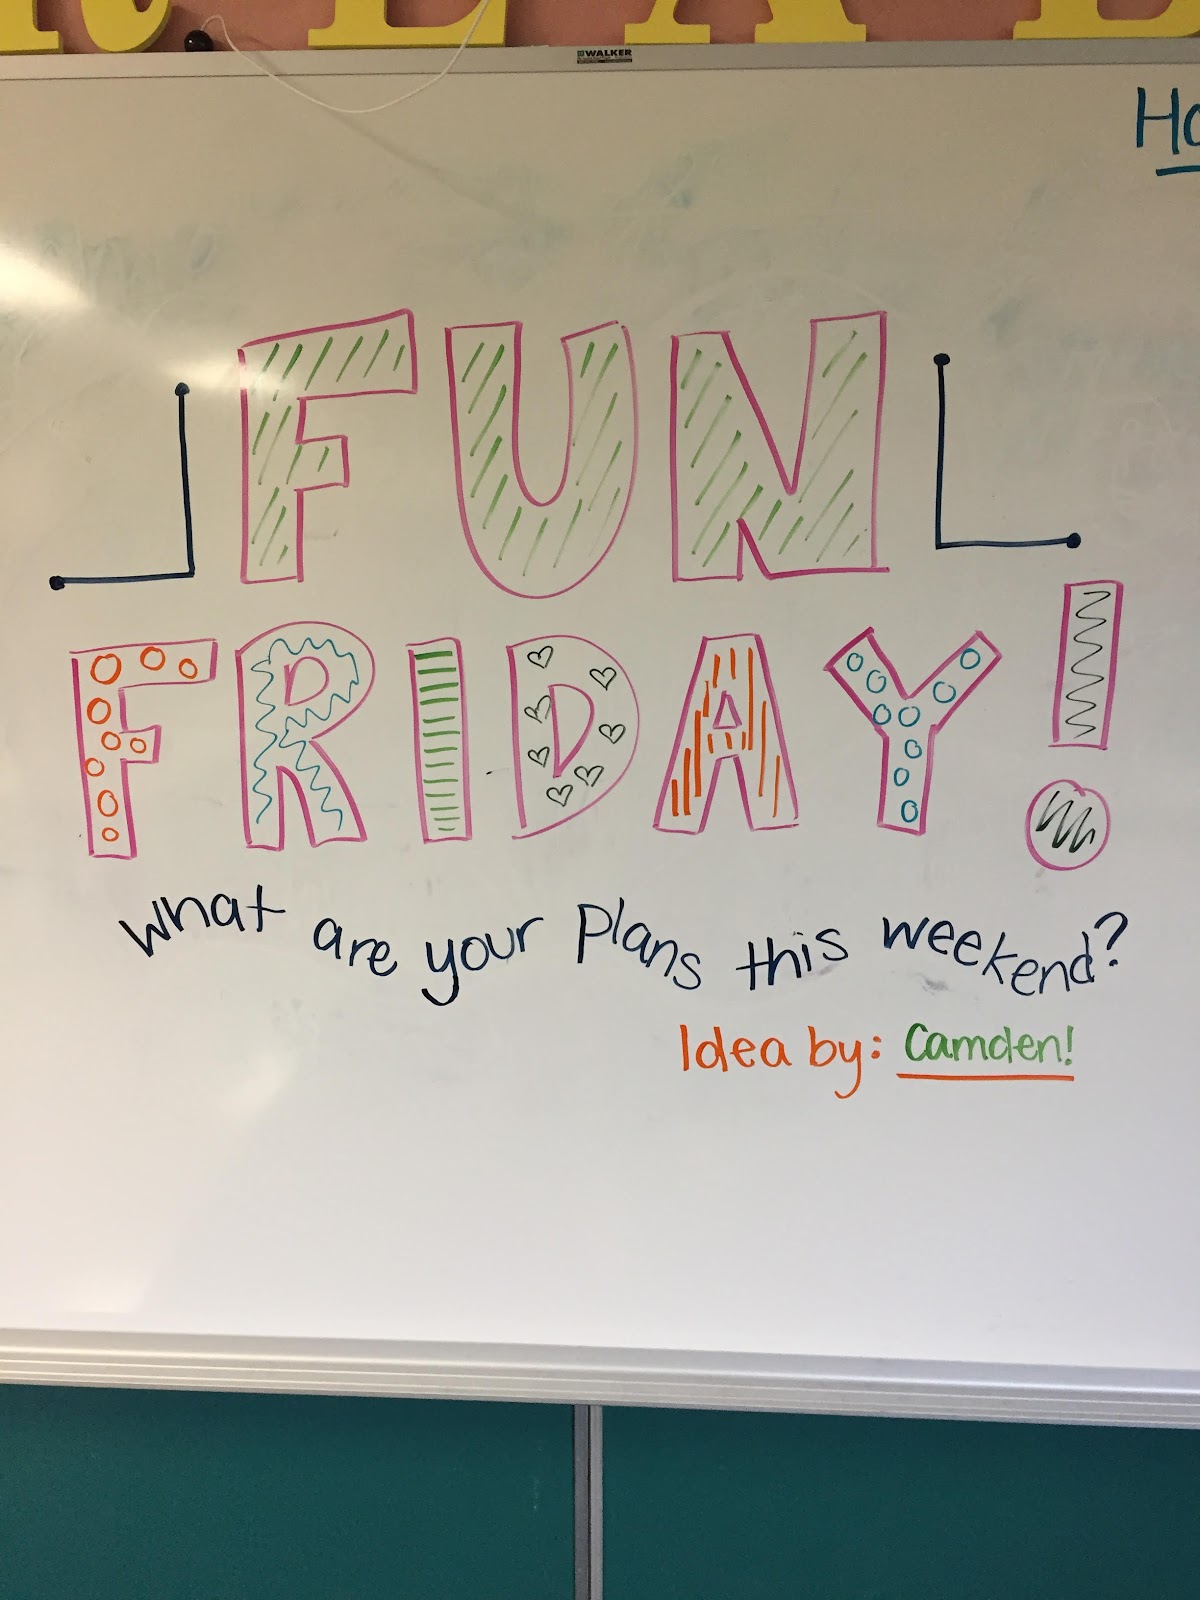 WALKER
FUN
FRIDAY!
What are your plans this weekend?
Idea by: Camden!